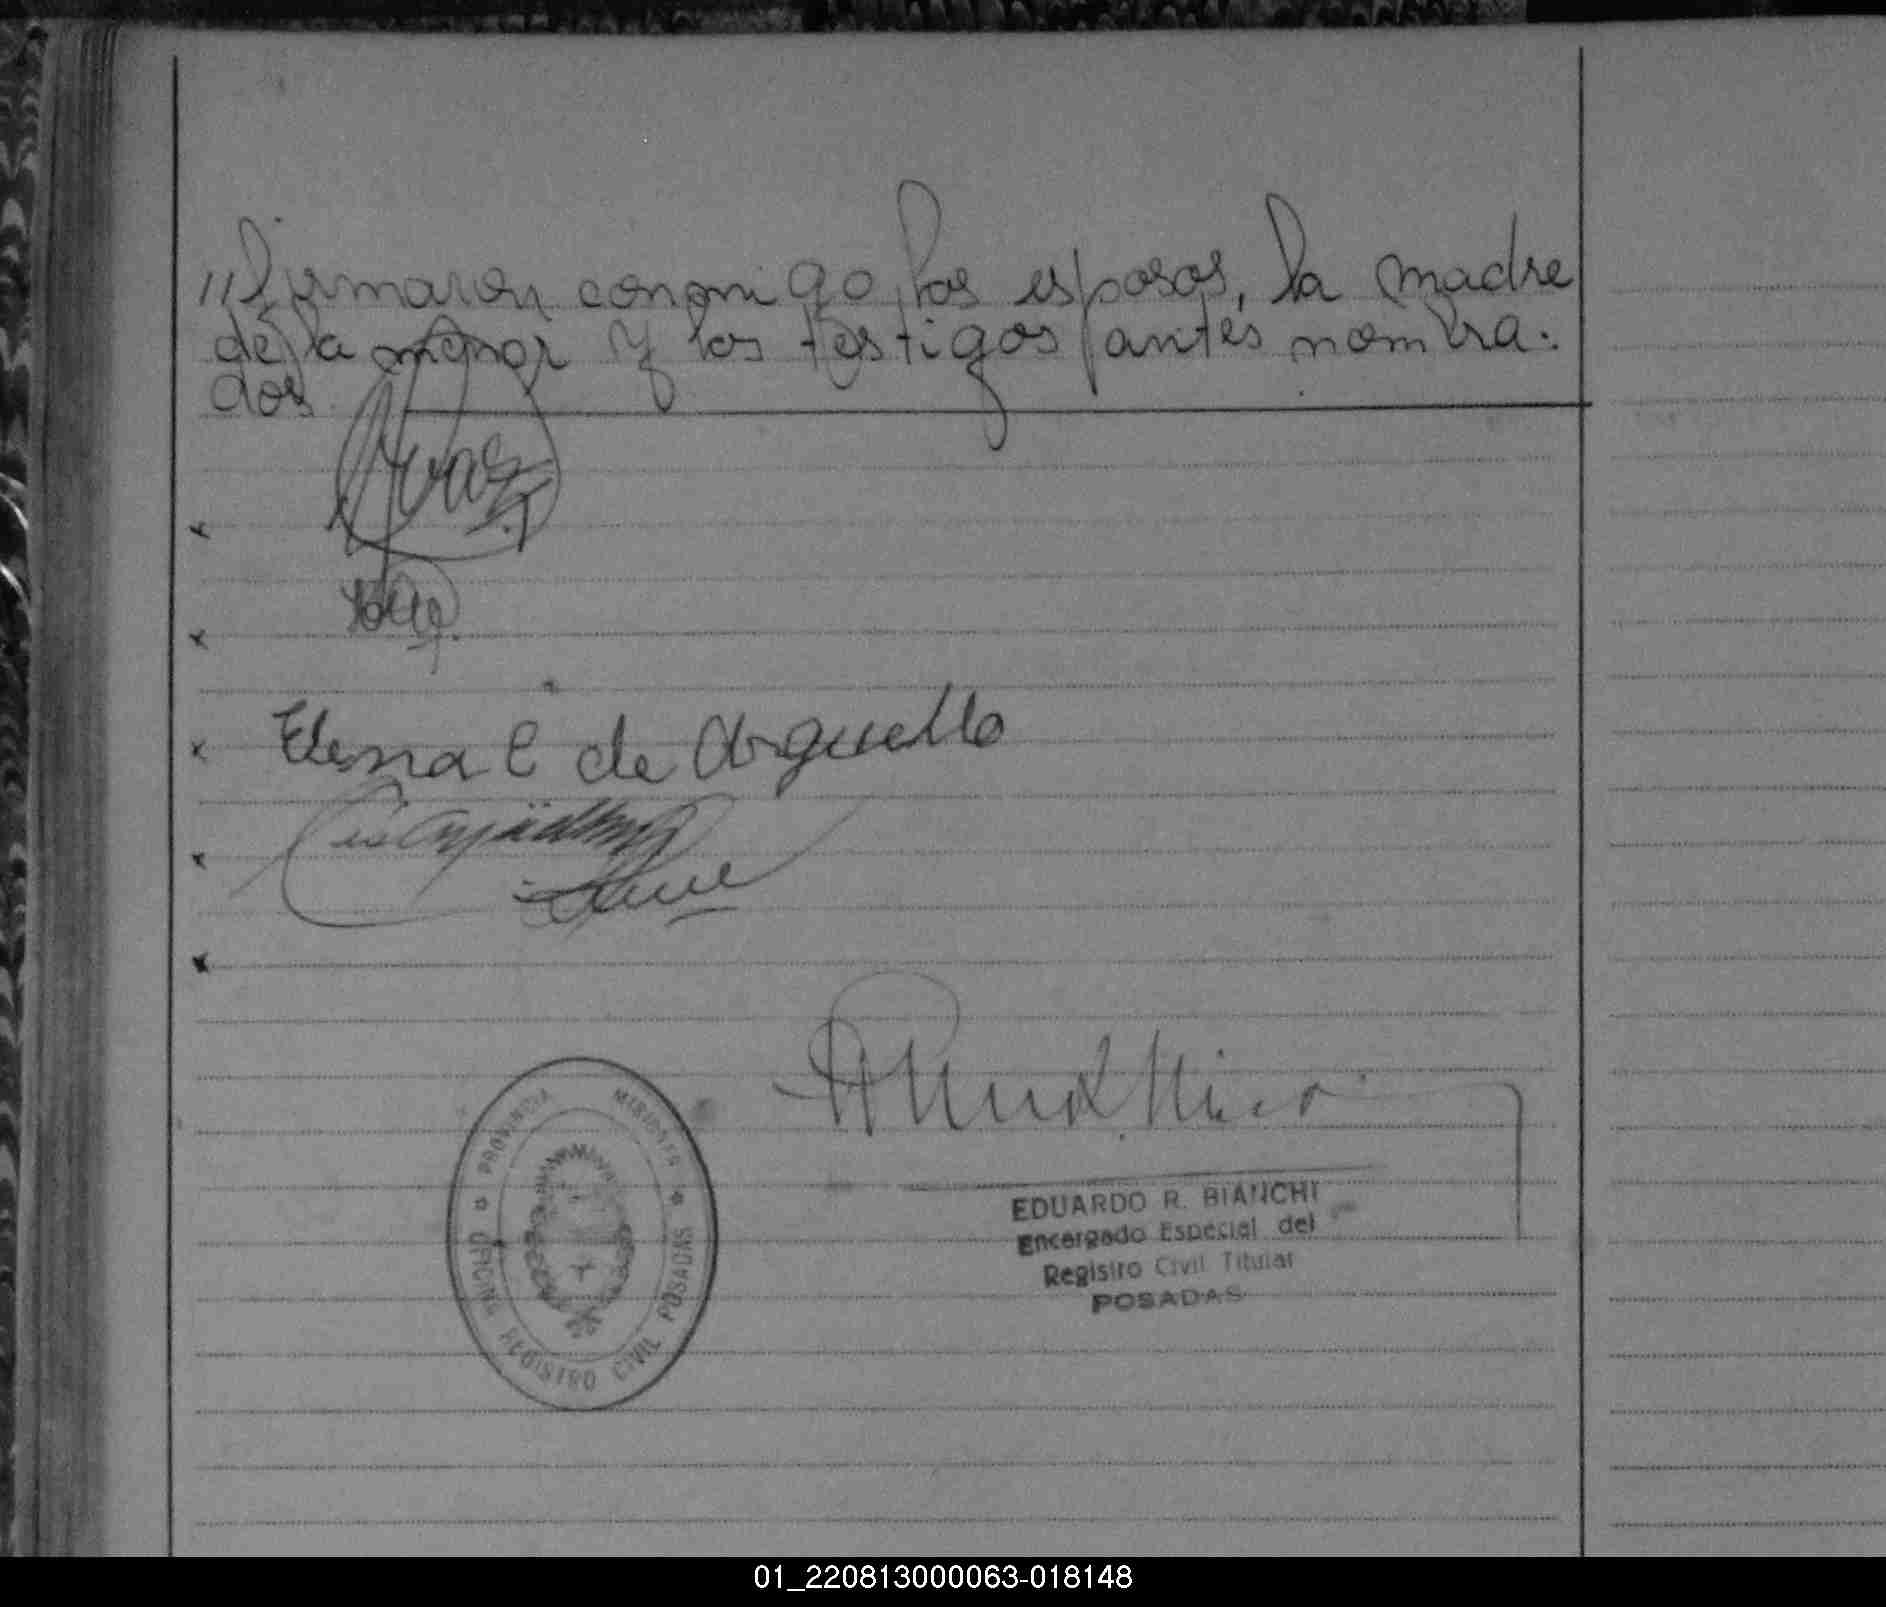 //firmaron conmigo, los esposos, la madre
de la menor y los testigos antes nombra-
dos
Elena C de Arguello
PROVINCIA MISIONES
OFICINA REGISTRO CIVIL POSADAS
EDUARDO R. BIANCHI
Encargado Especial del
Registro Civil Titular
POSADAS
01_220813000063-018148